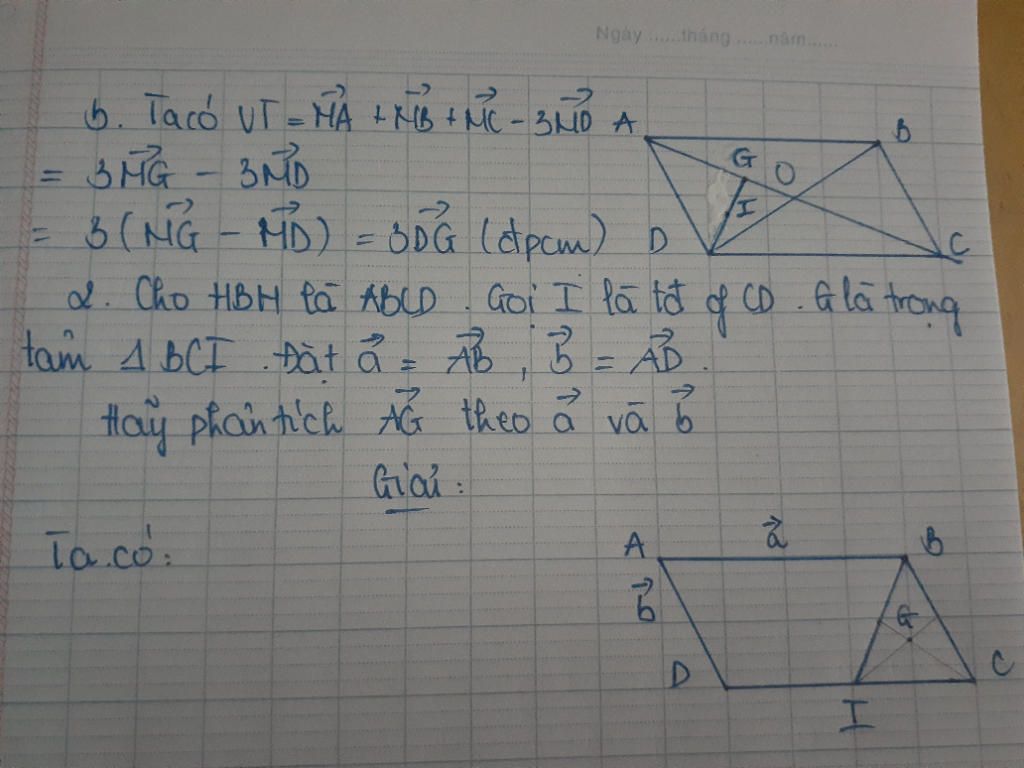 Ngày ......tháng ......năm......
b. Ta có VT = MA⃗ + MB⃗ + MC⃗ - 3MD⃗
= 3MG⃗ - 3MD⃗
= 3(MG⃗ - MD⃗) = 3DG⃗ (đpcm)
A B
G O
I
D C
2. Cho HBH là ABCD. Gọi I là tđ of CD. G là trọng
tâm Δ BCI. Đặt a⃗ = AB⃗, b⃗ = AD⃗.
Hãy phân tích AG⃗ theo a⃗ và b⃗
Giải:
Ta có:
A a⃗ B
b⃗ G
D C
I